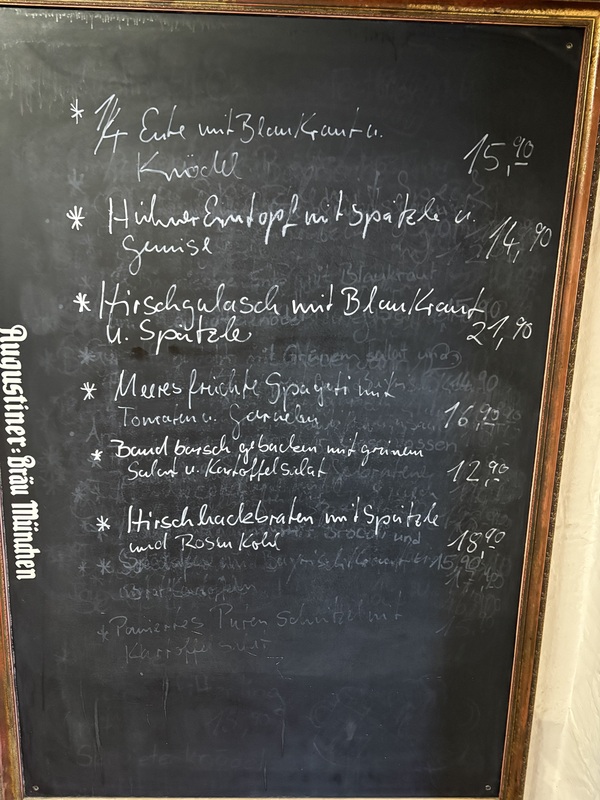 * 1/4 Ente mit BlauKraut u.
Knödel 15,90
* HühnerEintopf mit Spätzle u.
Gemüse 14,90
* Hirschgulasch mit BlauKraut
u. Spätzle 21,90
* Meeresfrüchte Spageti mit
Tomaten u. Garnelen 16,90
* Band barsch gebacken mit grünem
Salat u. Kartoffelsalat 12,90
* Hirschhackbraten mit Spätzle
und RosenKohl 18,90
* Paniertes Puten schnitzel mit
Kartoffelsalat
Augustiner-Bräu München